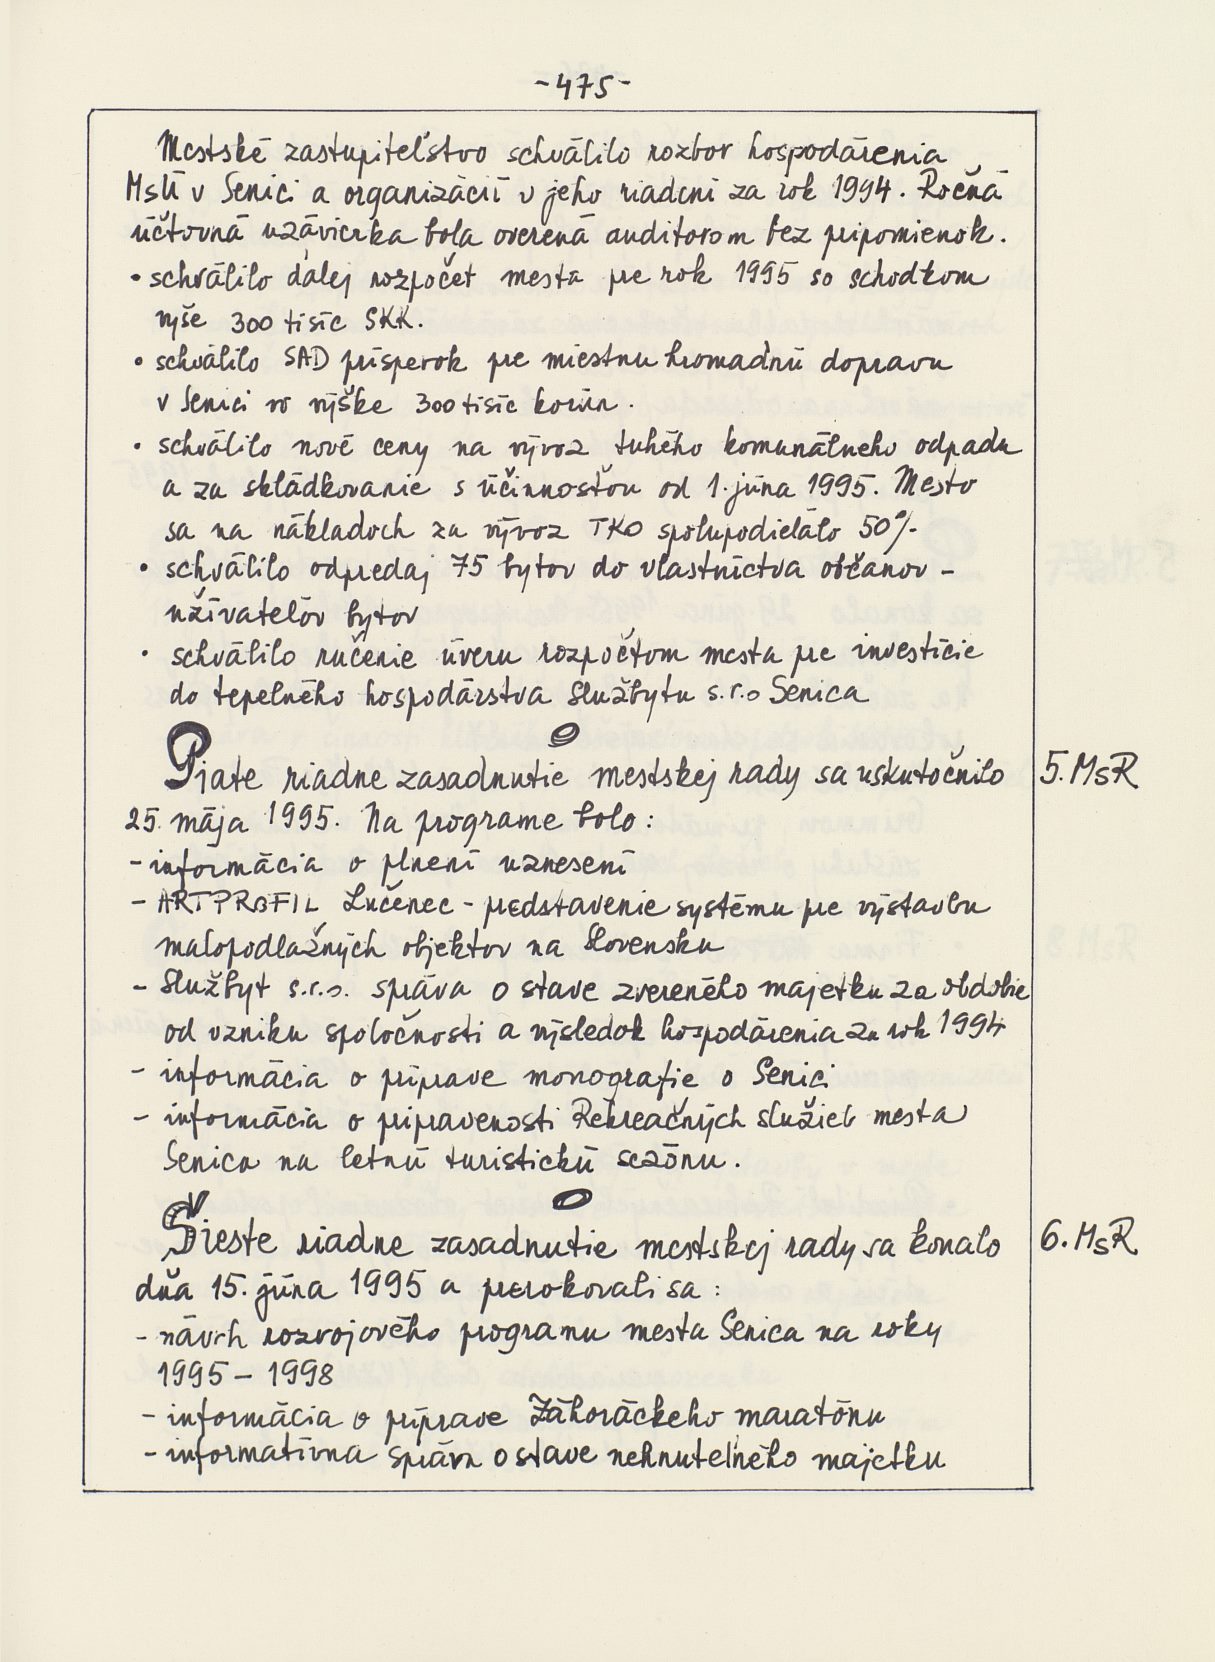 -475-
Mestské zastupiteľstvo schválilo rozbor hospodárenia
MsÚ v Senici a organizácií v jeho riadení za rok 1994. Ročná
účtovná uzávierka bola overená audítorom bez pripomienok.
• schválilo ďalej rozpočet mesta pre rok 1995 so schodkom
výše 300 tisíc SKK.
• schválilo SAD príspevok pre miestnu hromadnú dopravu
v Senici vo výške 300 tisíc korún.
• schválilo nové ceny na vývoz tuhého komunálneho odpadu
a za skládkovanie s účinnosťou od 1. júna 1995. Mesto
sa na nákladoch za vývoz TKO spolupodieľalo 50%.
• schválilo odpredaj 75 bytov do vlastníctva občanov -
užívateľov bytov
• schválilo ručenie úveru rozpočtom mesta pre investície
do tepelného hospodárstva Službytu s.r.o Senica
Piate riadne zasadnutie mestskej rady sa uskutočnilo
5. MsR
25. mája 1995. Na programe bolo:
- informácia o plnení uznesení
- ARTPROFIL Lučenec - predstavenie systému pre výstavbu
malopodlažných objektov na Slovensku
- Službyt s.r.o. správa o stave zvereného majetku za obdobie
od vzniku spoločnosti a výsledok hospodárenia za rok 1994
- informácia o príprave monografie o Senici
- informácia o pripravenosti Rekreačných služieb mesta
Senica na letnú turistickú sezónu.
Šieste riadne zasadnutie mestskej rady sa konalo
6. MsR
dňa 15. júna 1995 a prerokovali sa:
- návrh rozvojového programu mesta Senica na roky
1995 - 1998
- informácia o príprave Záhoráckeho maratónu
- informatívna správa o stave nehnuteľného majetku